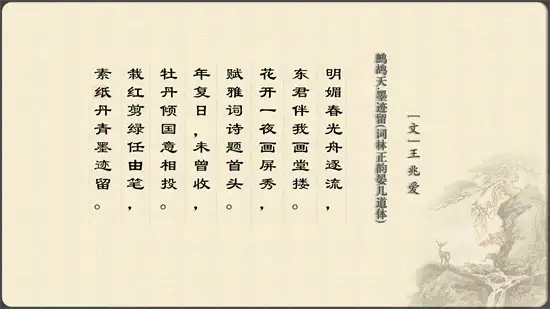 鹧鸪天·墨迹留(词林正韵晏几道体)
[文]王兆爱
明媚春光舟逐流，
东君伴我画堂搂。
花开一夜画屏秀，
赋雅词诗题首头。
年复日，未曾收，
牡丹倾国意相投。
栽红剪绿任由笔，
素纸丹青墨迹留。